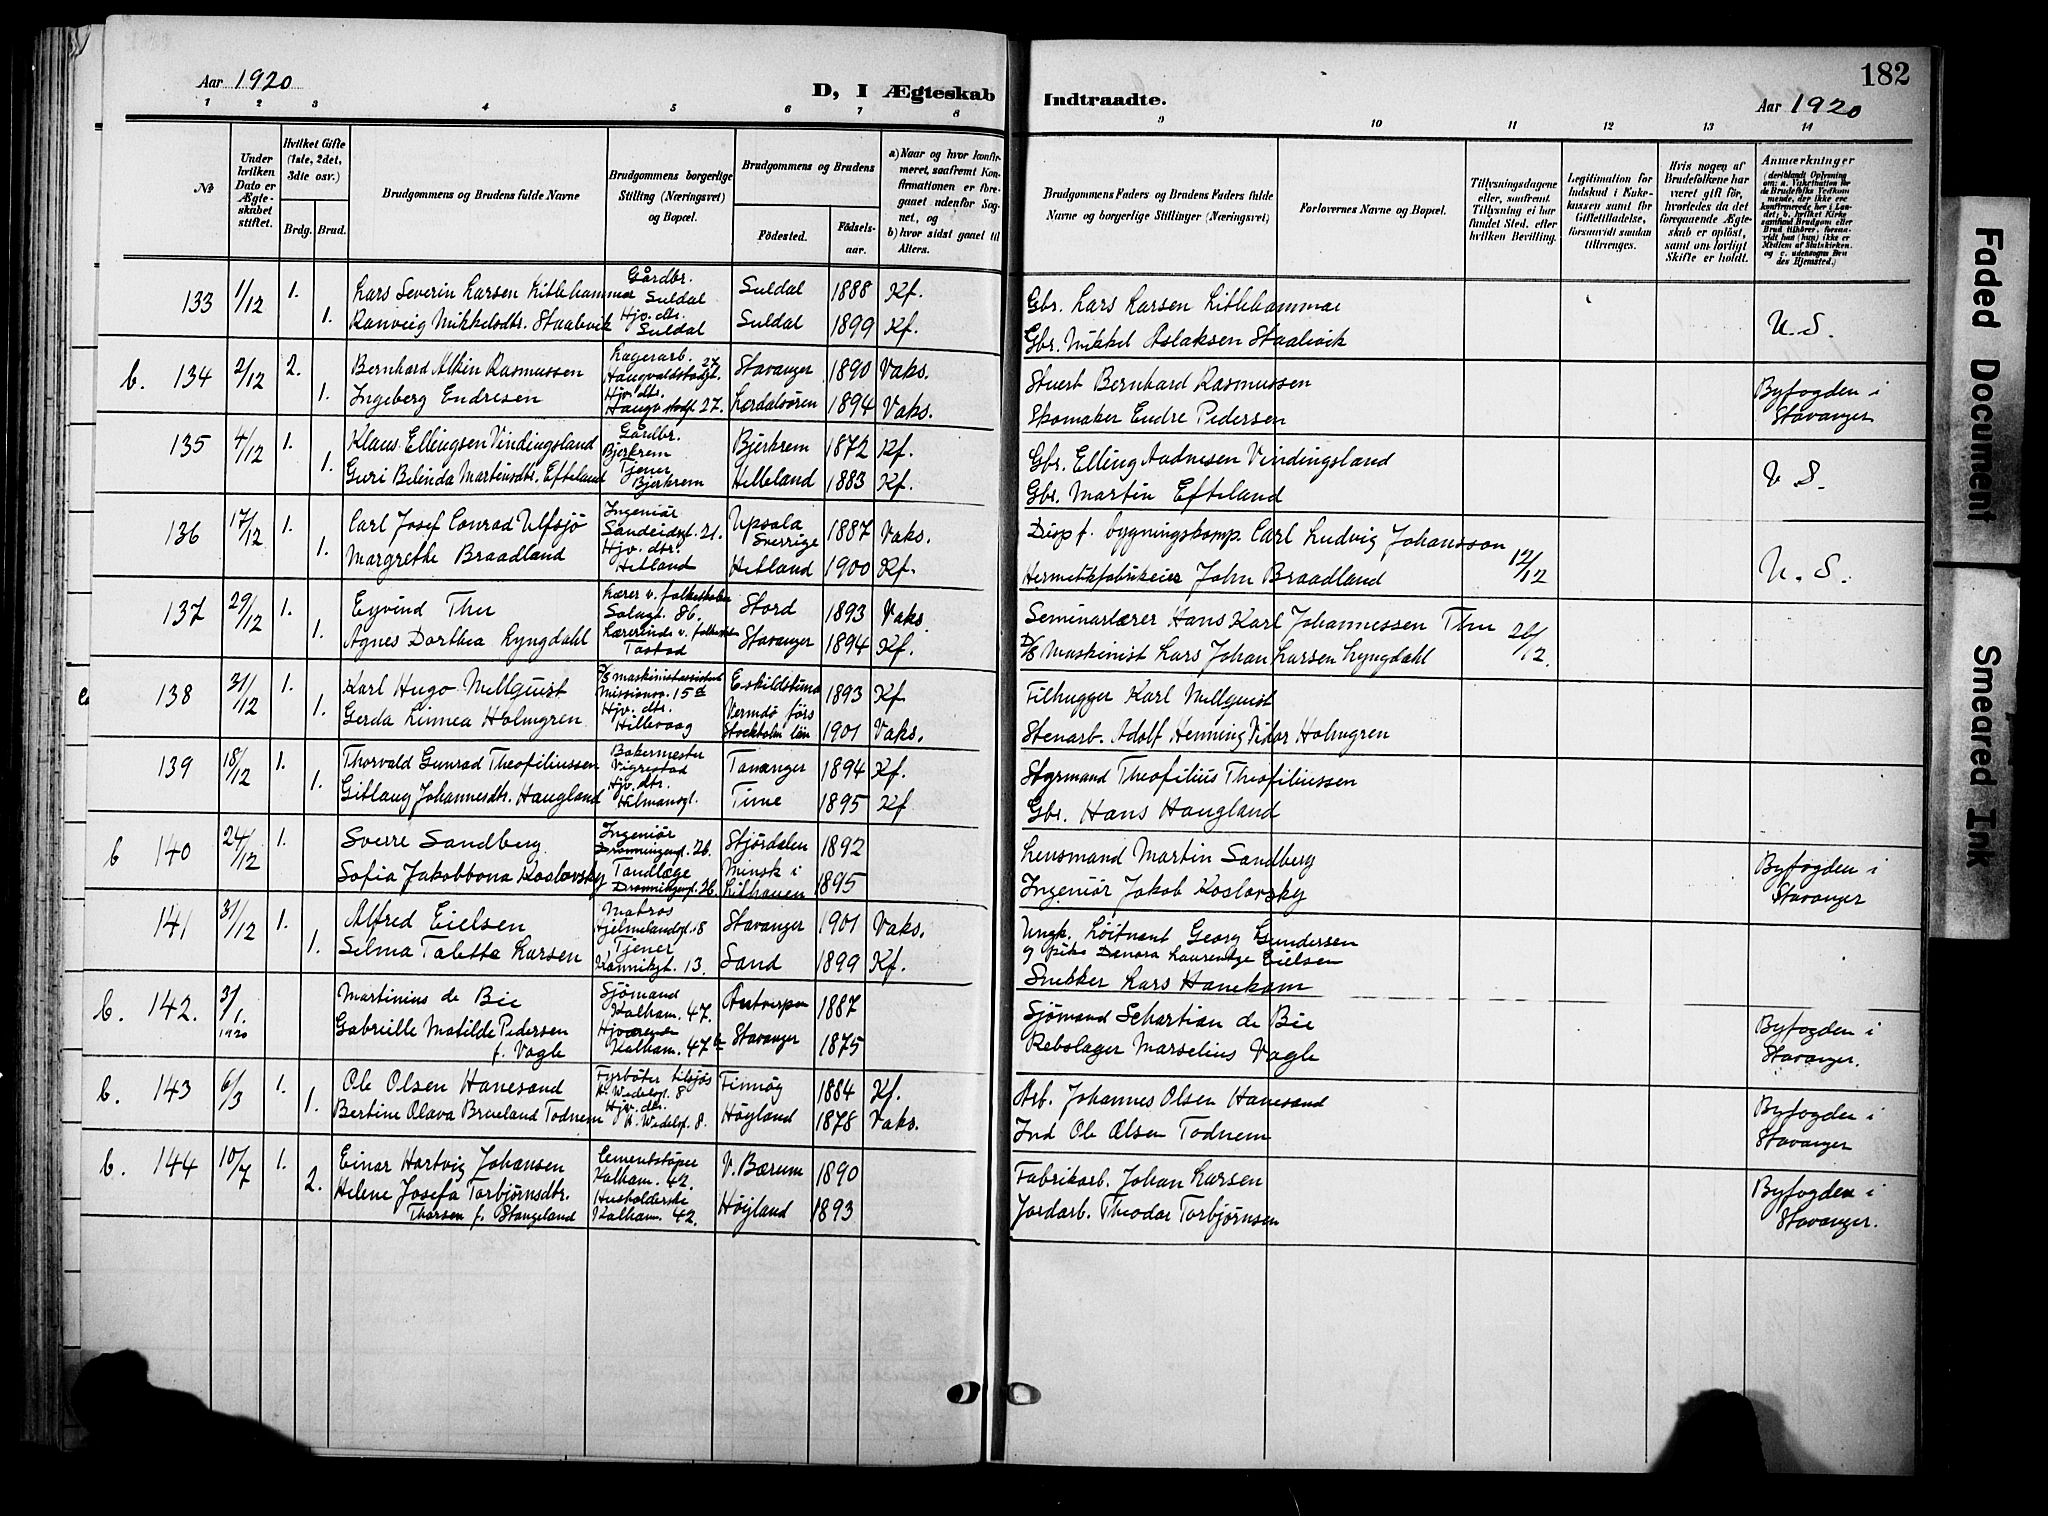 Aar 1920
D, I Ægteskab
Indtraadte.
182
Aar 1920
1 2 3 4 5 6 7 8 9 10 11 12 13 14
№
Under hvilken Dato er Ægteskabet stiftet.
Hvilket Gifte (1ste, 2det, 3die osv.)
Brdg. Brud.
Brudgommens og Brudens fulde Navne
Brudgommens borgerlige Stilling (Næringsvei) og Bopæl.
Brudgommens og Brudens
Fødested. Fødsels-aar.
a) Naar og hvor konfirmeret, saafremt Konfirmationen er foregaaet udenfor Sognet, og
b) hvor sidst gaaet til Alters.
Brudgommens Faders og Brudens Faders fulde Navne og borgerlige Stillinger (Næringsvei)
Forlovernes Navne og Bopæl.
Tillysningsdagene eller, saafremt Tillysning ei har fundet Sted, efter hvilken Bevilling.
Legitimation for Indskud i Enkekassen samt for Giftetilladelse, forsaavidt saadan tiltrenges.
Hvis nogen af Brudefolkene har været gift før, hvorledes da det foregaaende Ægteskab er opløst, samt om lovligt Skifte er holdt.
Anmærkninger
133 1/12 1. Lars Severin Larsen Litlehammar Gårdbr. Suldal Suldal 1888 Kf. Gbr. Lars Larsen Litlehammar
1. Ranveig Mikkelsdtr. Staalevik Hjv. dtr. Suldal Suldal 1899 Kf. Gbr. Mikkel Aslaksen Staalevik U.S.
b. 134 2/12 2. Bernhard Alkin Rasmussen Lagerarb. Haugvaldstadgt. 27 Stavanger 1890 Vaks. Stuert Bernhard Rasmussen Byfogden i
1. Ingeberg Endresen Hjv. dtr. Haugv.stadgt 27. Lærdalsören 1894 Vaks. Skomaker Endre Pedersen Stavanger
135 4/12 1. Klaus Ellingsen Vindingsland Gårdbr. Bjerkrem Bjerkrem 1872 Kf. Gbr. Elling Aadnesen Vindingsland
1. Guri Belinda Martinsdtr. Efteland Tjener Bjerkrem Helleland 1883 Kf. Gbr. Martin Efteland U S.
136 17/12 1. Carl Josef Conrad Ulfsjö Ingeniör Sandeidgt. 21. Upsala Sverrige 1887 Vaks. Disp f. bygningskomp. Carl Ludvig Johansson
1. Margrethe Braadland Hjv. dtr. Hetland Hetland 1900 Kf. Hermetikfabrikeier John Braadland 12/12 U. S.
137 29/12 1. Eyvind Thu Lærer v. folkeskolen Solagt. 86. Stord 1893 Vaks. Seminarlærer Hans Karl Johannessen Thu
1. Agnes Dorthea Lyngdahl Lærerinde v. folkesk. Tastad Stavanger 1894 Kf. D/S Maskinist Lars Johan Larsen Lyngdahl
138 31/12 1. Karl Hugo Mellquist D/S maskinistassistent Missionsv. 15 Eskildstuna 1893 Kf. Filhugger Karl Mellquist
1. Gerda Linnea Holmgren Hjv. dtr. Hillevaag Vermdö förs Stockholm län 1901 Vaks. Stenarb. Adolf Henning Viktor Holmgren
139 18/12 1. Thorvald Gunrad Theofiliussen Bakermester Vigrestad Tananger 1894 Kf. Styrmand Theofilius Theofiliussen
1. Gitlaug Johannesdtr. Haugland Hjv. dtr. Hilmansgt. Time 1895 Kf. Gbr. Hans Haugland
b 140 24/12 1. Sverre Sandberg Ingeniör Dronningengt. 26. Stjördalen 1892 Lensmand Martin Sandberg Byfogden i
Sofia Jakobbona Koslovsky Tandlæge Dronningengt. 26. Minsk i Lithauen 1895 Ingeniör Jakob Koslovsky Stavanger
141 31/12 1. Alfred Eielsen Matros Hjelmelandsgt. 8 Stavanger 1901 Vaks. Ungk. Löitnant Georg Gundersen
og pike Laurentze Eielsen
1. Selma Talette Larsen Tjener Kannikgt. 13. Sand 1899 Kf. Snekker Lars Hanekam
b. 142. 3/1. 1920 Martinius de Bie Sjömand Kalham. 47. Antverpen 1887 Sjömand Sebastian de Bie Byfogden i
Gabrielle Matilde Pedersen f. Vagle Hjværende Kalham. 47 Stavanger 1875 Rebslager Marselius Vagle Stavanger.
b. 143 6/3 1. Ole Olsen Hanesand Fyrböter tilsjös K. Wedelsgt. 8 Finnöy 1884 Kf. Arb. Johannes Olsen Hanesand Byfogden i
1. Bertine Olava Brueland Todnem Hjv. dtr. K. Wedelsgt. 8. Höyland 1878 Vaks. Ind Ole Olsen Todnem Stavanger
b. 144 10/7 1. Einar Hartvig Johansen Cementstöper Kalham. 42. V. Bærum 1890 Fabrikarb. Johan Larsen Byfogden i
2. Helene Josefa Torbjørnsdtr. Thorsen f. Stangeland Husholderske Kalham. 42. Höyland 1893 Jordarb. Theodor Torbjørnsen Stavanger.
Faded Document
Smeared Ink